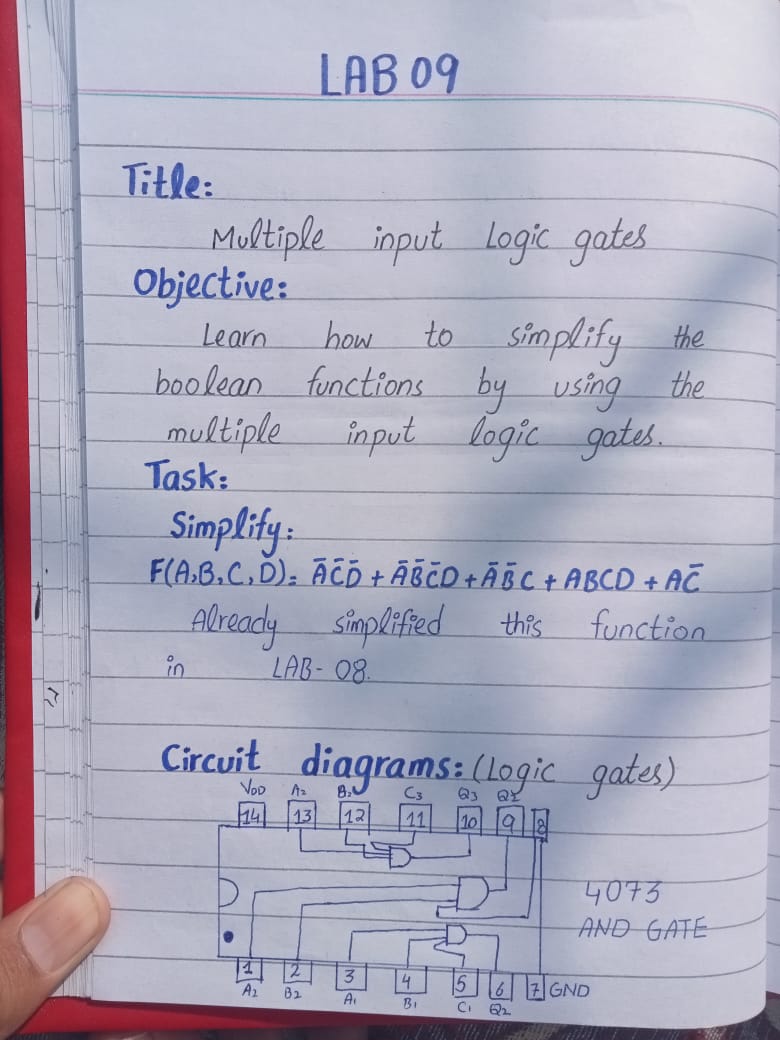 LAB 09
Title:
Multiple input Logic gates
Objective:
Learn how to simplify the
boolean functions by using the
multiple input logic gates.
Task:
Simplify:
F(A,B,C,D)= ĀC̄D̄ + ĀB̄C̄D + ĀB̄C + ABCD + AC̄
Already simplified this function
in LAB-08.
Circuit diagrams: (Logic gates)
VDD A2 B2 C3 Q3 Q2
14 13 12 11 10 9 8
4073
AND GATE
1 2 3 4 5 6 7 GND
A2 B2 A1 B1 C1 Q2